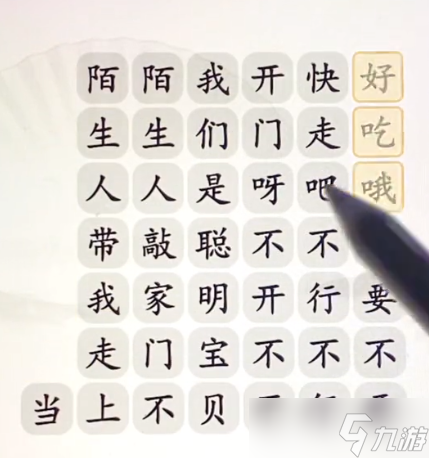 陌陌我开快好
生生们门走吃
人人是呀吧哦
带敲聪不不
我家明开行要
走门宝不不不
当上不贝
九游